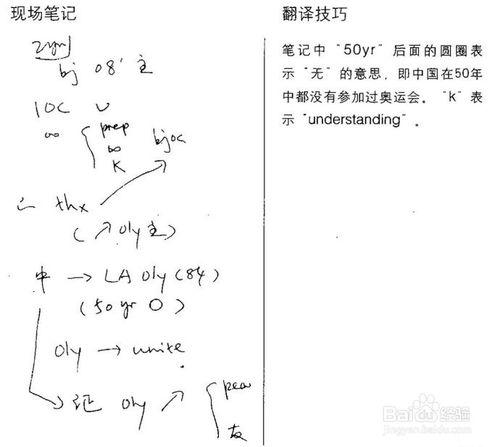 现场笔记
2yr
bj 08' 主
IOC U
∞ { prep
∞
K
bjoc
∴ thx
(↗ oly 主)
中 → LA oly (84)
(50 yr O)
oly → unite.
→ 证 oly ↗ { pea
友
翻译技巧
笔记中“50yr”后面的圆圈表
示“无”的意思，即中国在50年
中都没有参加过奥运会。“k”表
示“understanding”。
Bai 经验
jingyan.baidu.com